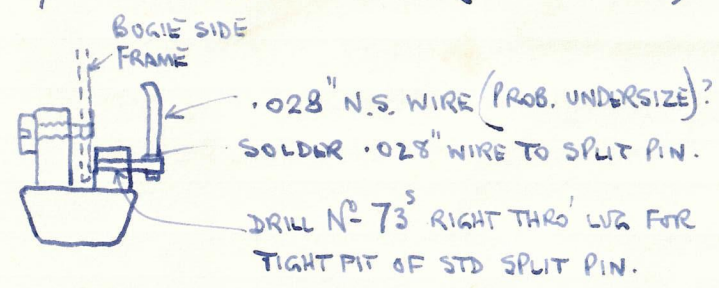 BOGIE SIDE
FRAME
.028" N.S. WIRE (PROB. UNDERSIZE)?
SOLDER .028" WIRE TO SPLIT PIN.
DRILL No 73s RIGHT THRO' LUG FOR
TIGHT FIT OF STD SPLIT PIN.